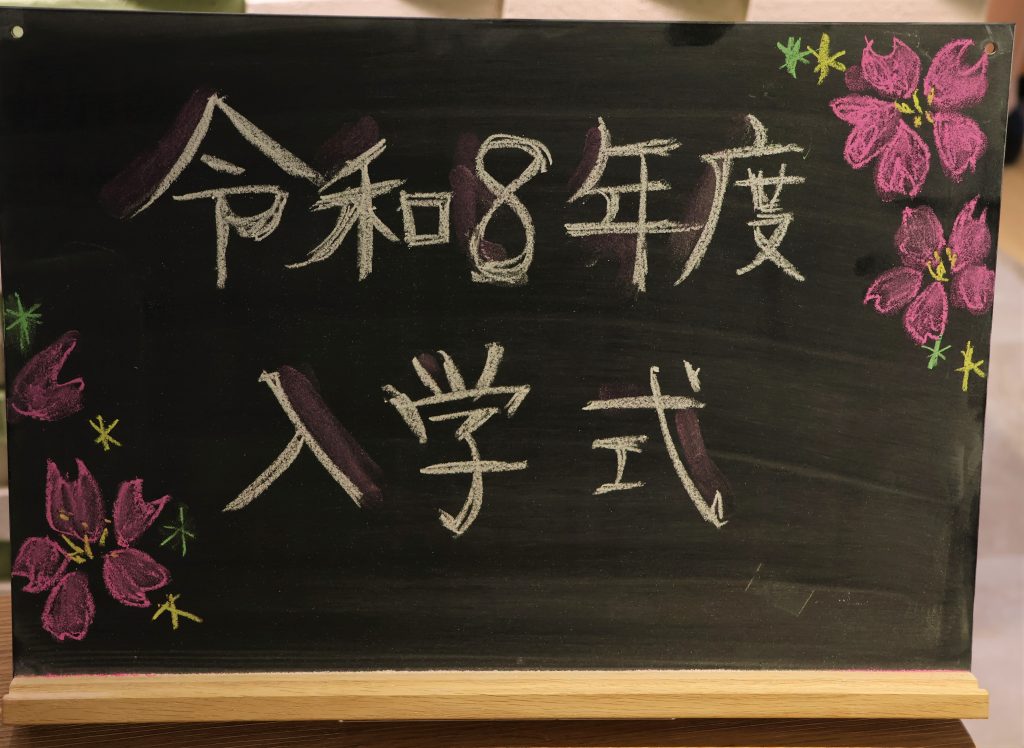 令和8年度
入学式